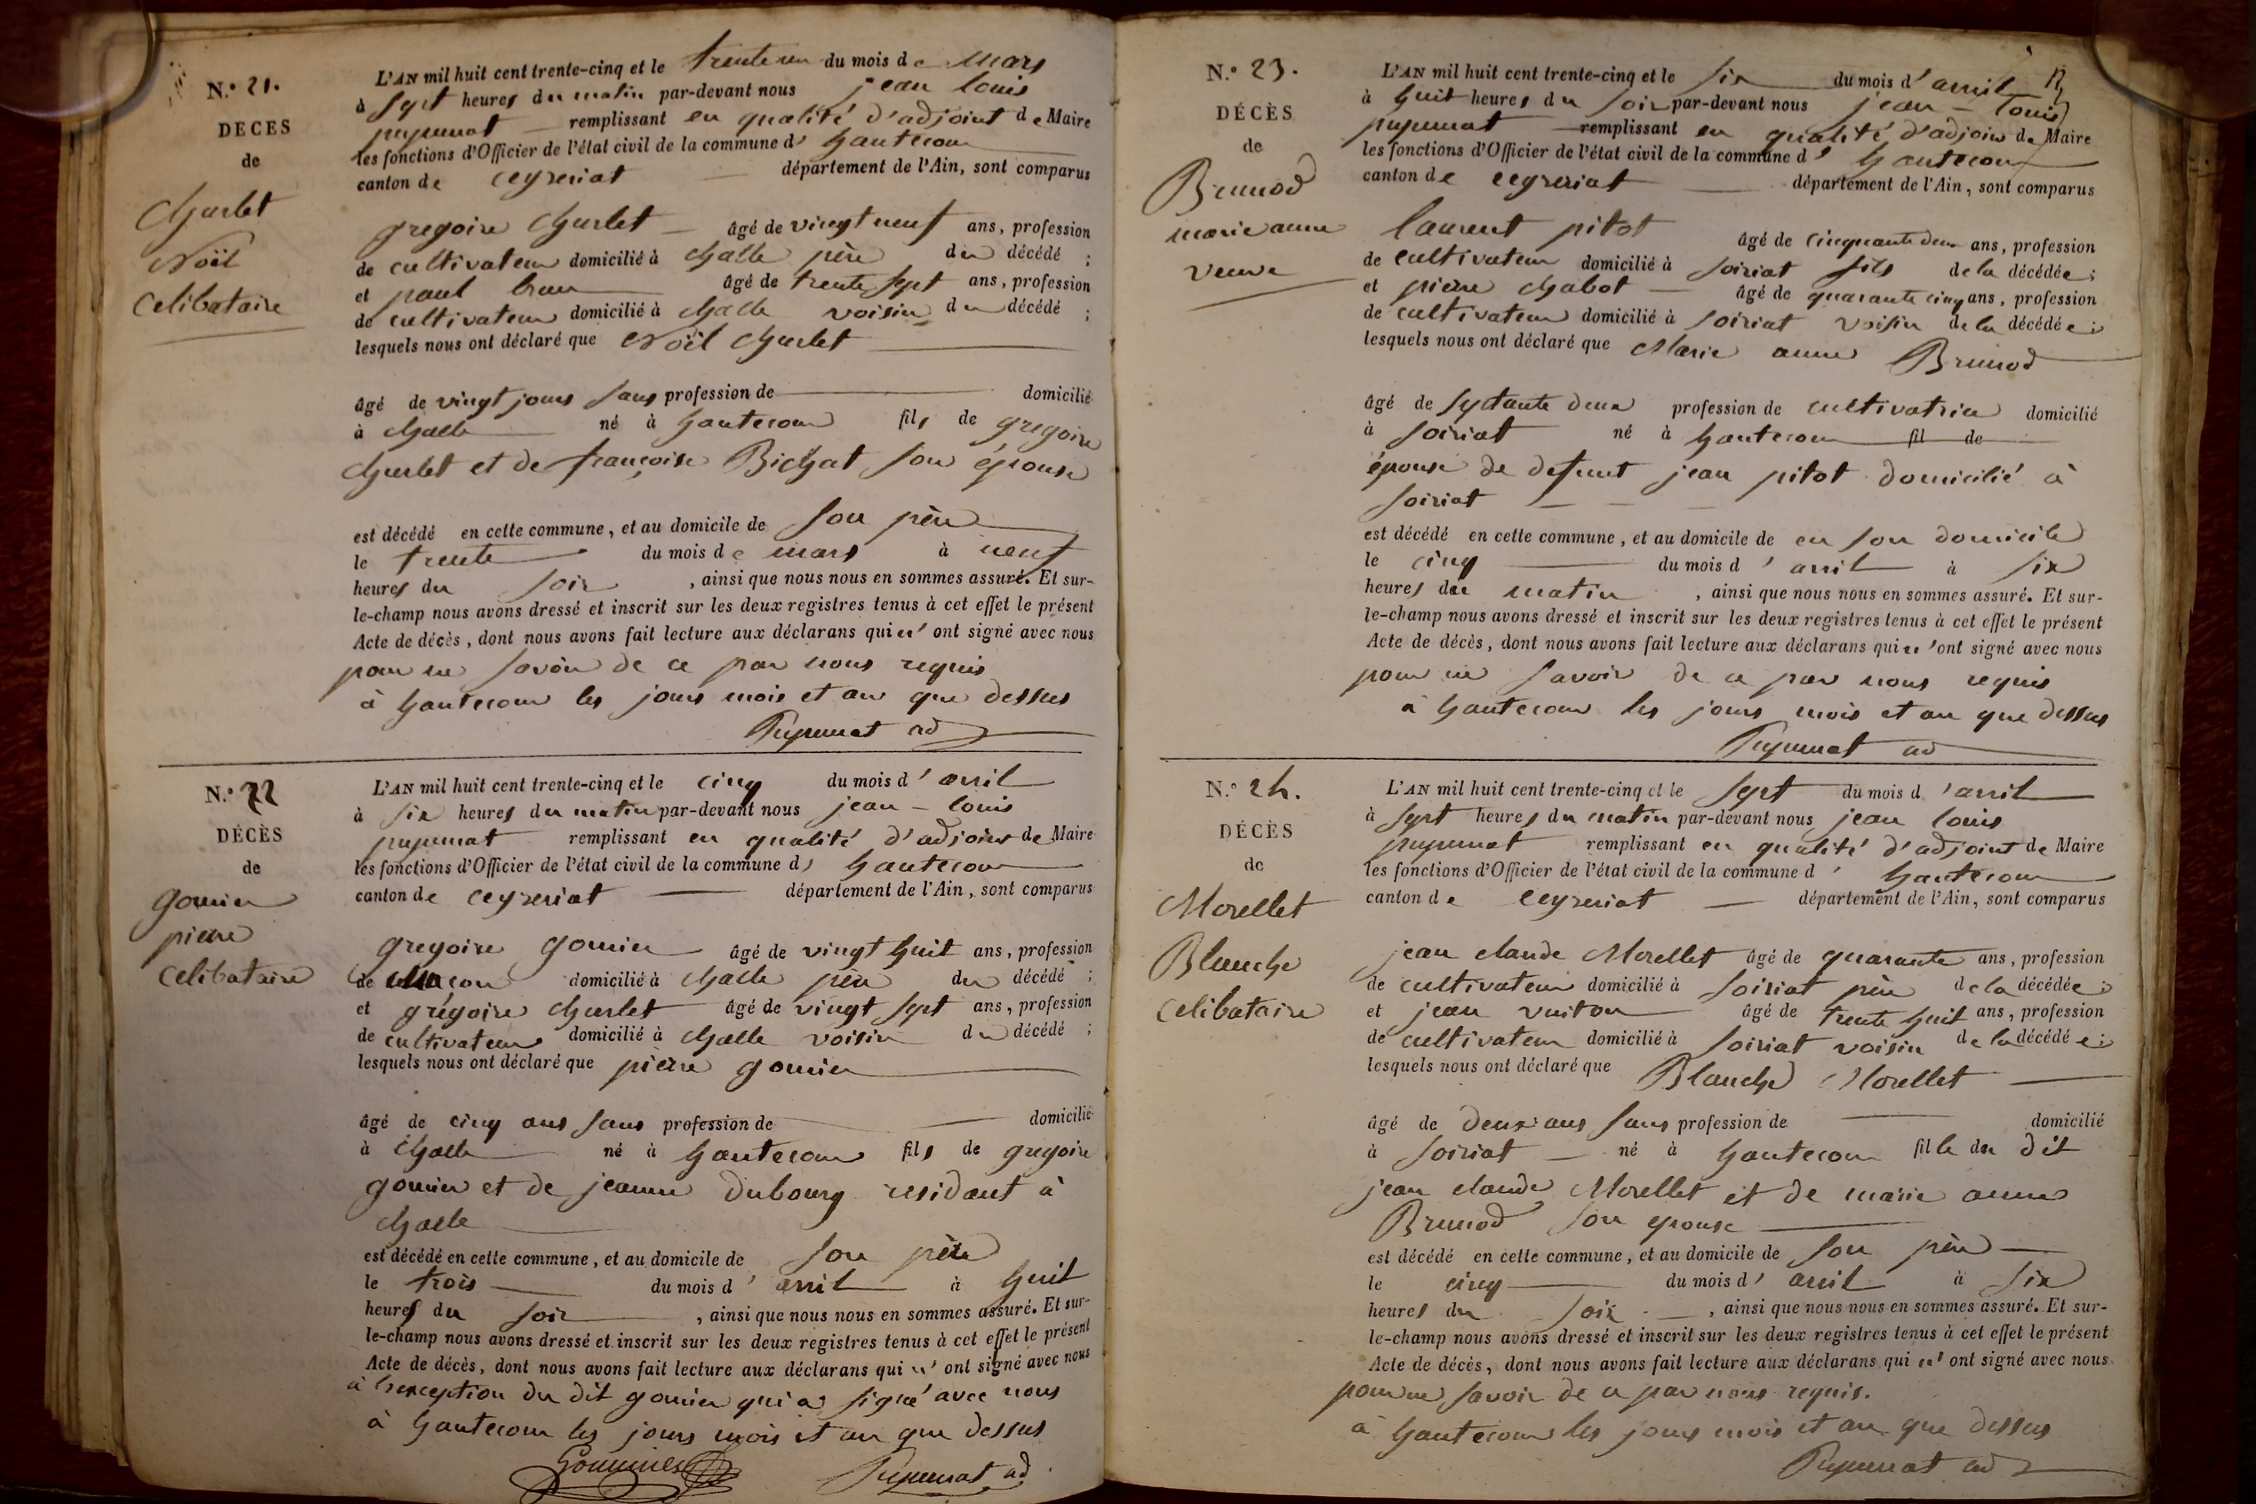 N.º 21.
DECES
de
Charlet
Noël
Celibataire
L'AN mil huit cent trente-cinq et le trente un du mois de mars
à sept heures du matin par-devant nous jean louis
pupunat remplissant en qualité d'adjoint de Maire
les fonctions d'Officier de l'état civil de la commune d' hautecour
canton de ceyzeriat département de l'Ain, sont comparus
gregoire Charlet âgé de vingt neuf ans, profession
de cultivateur domicilié à Challe père du décédé ;
et paul brun âgé de trente sept ans, profession
de cultivateur domicilié à Challe voisin du décédé ;
lesquels nous ont déclaré que Noël Charlet
âgé de vingt jours sans profession de domicilié
à Challe né à hautecour fils de gregoire
Charlet et de françoise Bichat son épouse
est décédé en cette commune, et au domicile de son père
le trente du mois de mars à neuf
heures du soir , ainsi que nous nous en sommes assuré. Et sur-
le-champ nous avons dressé et inscrit sur les deux registres tenus à cet effet le présent
Acte de décès, dont nous avons fait lecture aux déclarans qui n'ont signé avec nous
pour ne savoir de ce par nous requis
à hautecour les jours mois et an que dessus
Pupunat ad
N.º 22
DÉCÈS
de
gounier
pierre
Celibataire
L'AN mil huit cent trente-cinq et le cinq du mois d'avril
à six heures du matin par-devant nous jean-louis
pupunat remplissant en qualité d'adjoint de Maire
les fonctions d'Officier de l'état civil de la commune d' hautecour
canton de ceyzeriat département de l'Ain, sont comparus
gregoire gounier âgé de vingt huit ans, profession
de maçon domicilié à Challe père du décédé ;
et grégoire Charlet âgé de vingt sept ans, profession
de cultivateur domicilié à Challe voisin du décédé ;
lesquels nous ont déclaré que pierre gounier
âgé de cinq ans sans profession de domicilié
à Challe né à hautecour fils de gregoire
gounier et de jeanne dubourg residant à
Challe
est décédé en cette commune, et au domicile de son père
le trois du mois d'avril à huit
heures du soir , ainsi que nous nous en sommes assuré. Et sur-
le-champ nous avons dressé et inscrit sur les deux registres tenus à cet effet le présent
Acte de décès, dont nous avons fait lecture aux déclarans qui n'ont signé avec nous
à l'exception du dit gounier qui a signé avec nous
à hautecour les jours mois et an que dessus
Gounnier Pupunat ad
N.º 23.
DÉCÈS
de
Brunod
marie anne
veuve
L'AN mil huit cent trente-cinq et le six du mois d'avril
à huit heures du soir par-devant nous jean-louis
pupunat remplissant en qualité d'adjoint de Maire
les fonctions d'Officier de l'état civil de la commune d' hautecour
canton de ceyzeriat département de l'Ain, sont comparus
laurent pitot âgé de cinquante deux ans, profession
de cultivateur domicilié à soiriat fils de la décédée ;
et pierre chabot âgé de quarante cinq ans, profession
de cultivateur domicilié à soiriat voisin de la décédée ;
lesquels nous ont déclaré que Marie anne Brunod
âgé de septante deux profession de cultivatrice domicilié
à soiriat né à hautecour fil de
épouse de defunt jean pitot domicilié à
soiriat
est décédé en cette commune, et au domicile de en son domicile
le cinq du mois d'avril à six
heures du matin , ainsi que nous nous en sommes assuré. Et sur-
le-champ nous avons dressé et inscrit sur les deux registres tenus à cet effet le présent
Acte de décès, dont nous avons fait lecture aux déclarans qui n'ont signé avec nous
pour ne savoir de ce par nous requis
à hautecour les jours mois et an que dessus
Pupunat ad
N.º 24.
DÉCÈS
de
Morellet
Blanche
Celibataire
L'AN mil huit cent trente-cinq et le sept du mois d'avril
à sept heures du matin par-devant nous jean louis
pupunat remplissant en qualité d'adjoint de Maire
les fonctions d'Officier de l'état civil de la commune d' hautecour
canton de ceyzeriat département de l'Ain, sont comparus
jean claude Morellet âgé de quarante ans, profession
de cultivateur domicilié à soiriat père de la décédée ;
et jean vuiton âgé de trente huit ans, profession
de cultivateur domicilié à soiriat voisin de la décédée ;
lesquels nous ont déclaré que Blanche Morellet
âgé de deux ans sans profession de domicilié
à soiriat né à hautecour fille du dit
jean claude Morellet et de marie anne
Brunod son epouse
est décédé en cette commune, et au domicile de son père
le cinq du mois d'avril à six
heures du soir , ainsi que nous nous en sommes assuré. Et sur-
le-champ nous avons dressé et inscrit sur les deux registres tenus à cet effet le présent
Acte de décès, dont nous avons fait lecture aux déclarans qui n'ont signé avec nous
pour ne savoir de ce par nous requis.
à hautecour les jours mois et an que dessus
Pupunat ad